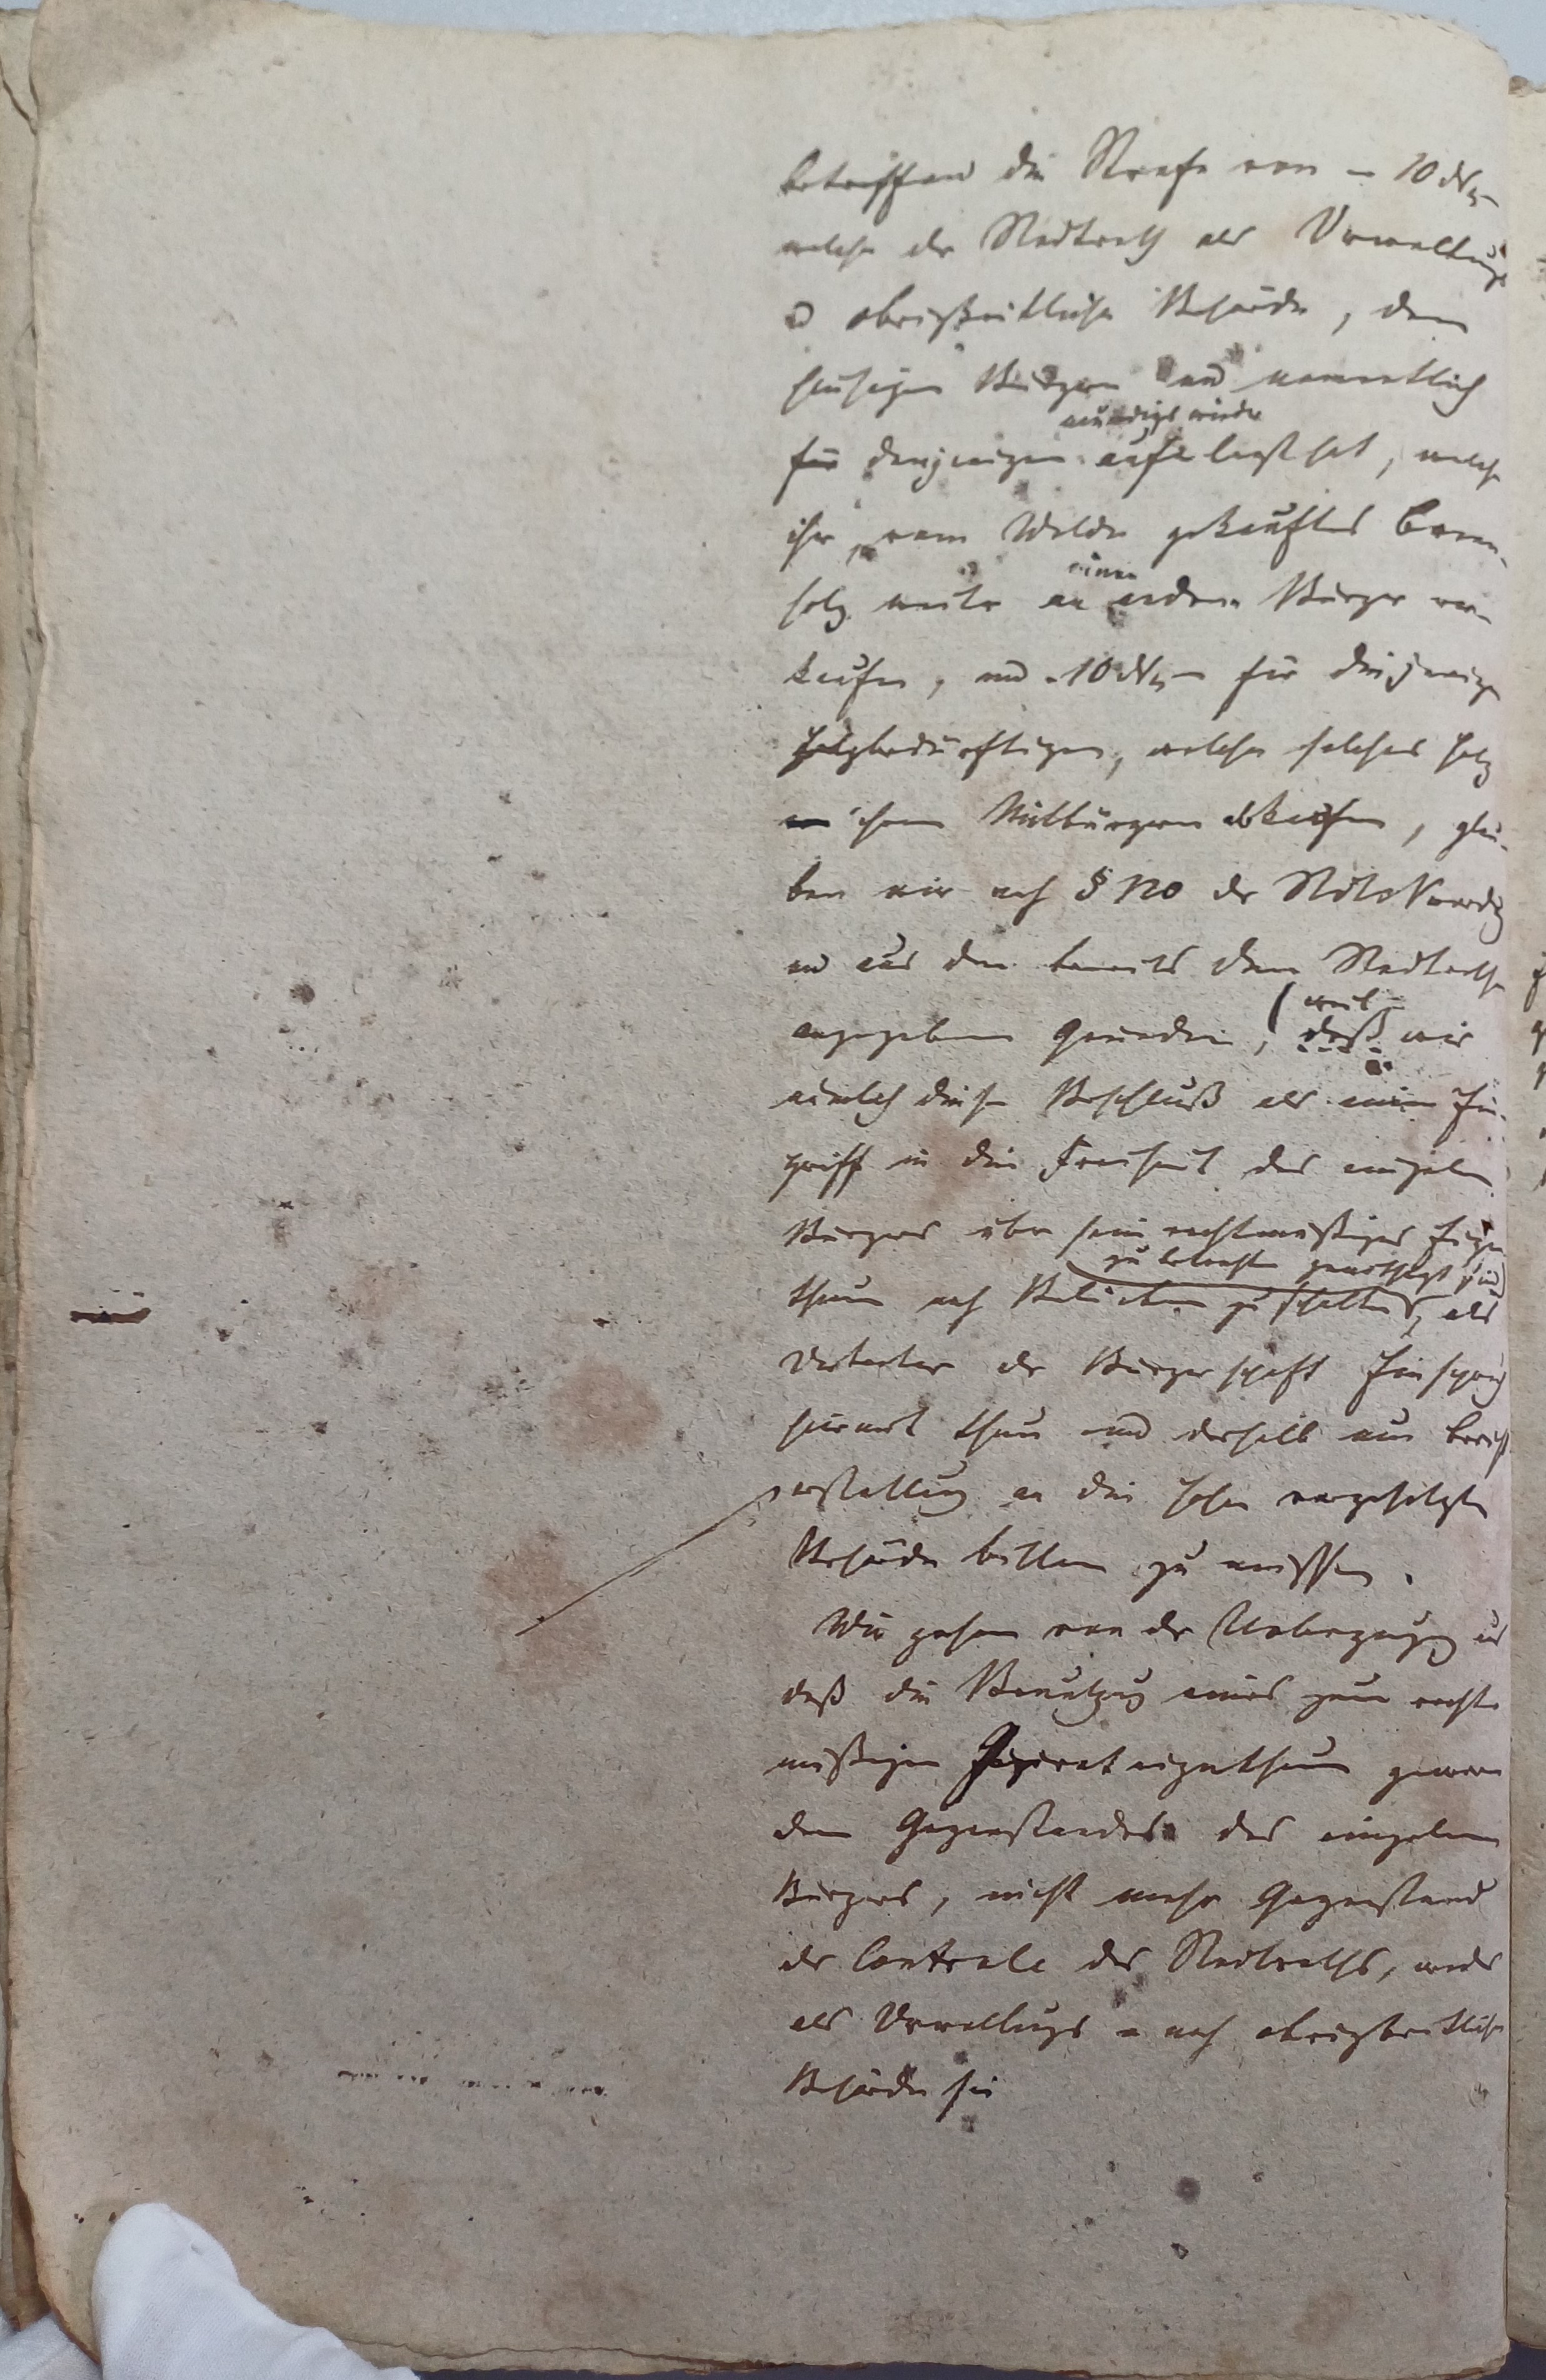 betreffend die Strafe von – 10 Ngr
welche der Stadtrath als Verwaltungs
u obrigkeitliche Behörde, den
hiesigen Bürgern und namentlich
wieder
für denjenigen auferlegt hat, welche
ihr, vom Walde gekauftes Brenn-
holz weiter an andern Bürger ver-
einen
kaufen, und – 10 Ngr – für diejenigen
Holzbedürftigen, welche solches Holz
ihren Mitbürgern abkaufen, glau-
ben wir nach § 120 der Städteordng
und aus den bereits dem Stadtrathe
weil
angegebenen Gründen, (daß wir
nämlich diesen Beschluß als einen Ein-
griff in die Freiheit des einzelnen
Bürgers über sein rechtmäßiges Eigen
zu betrachten genöthigt sind
thum nach Belieben zu schalten), als
Vertreter der Bürgerschaft Einspruch
hierwert thun und deshalb um Bericht
erstattung an die hohe vorgesetzte
Behörde bitten zu müssen.
Wir gehen von der Ueberzeugung aus
daß die Benutzung eines zum recht
mäßigen Privateigenthum gewor
denen Gegenstandes des einzelnen
Bürgers, nicht mehr Gegenstand
der Controle des Stadtraths, weder
als Verwaltungs – noch obrigkeitliche
Behörde sei